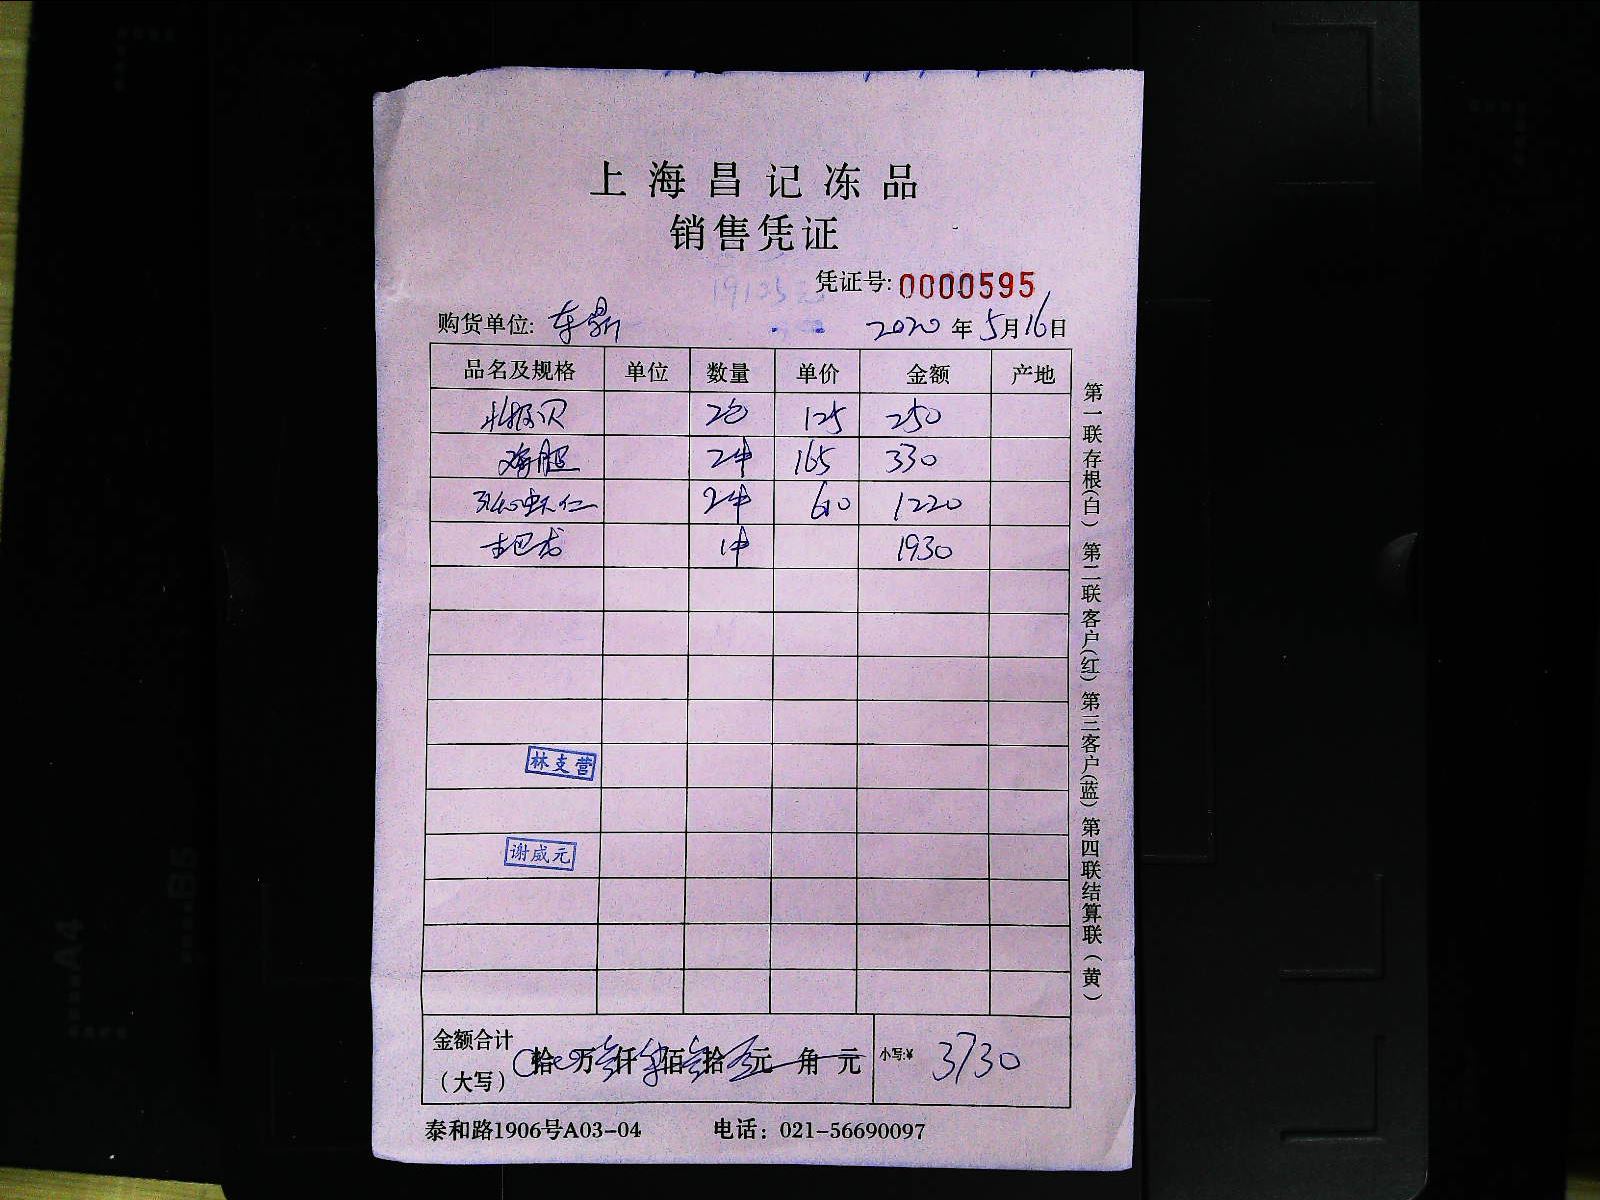 上海昌记冻品
销售凭证
凭证号: 0000595
购货单位: 东鼎 2020年5月16日
品名及规格 单位 数量 单价 金额 产地
北极贝 2包 125 250
海胆 2件 165 330
虾仁 2件 610 1220
古巴龙 1件 1930
林支营
谢咸元
金额合计(大写) 拾 万叁仟柒佰叁拾 元 角 元 小写:¥ 3730
泰和路1906号A03-04 电话: 021-56690097
第一联存根(白) 第二联客户(红) 第三客户(蓝) 第四联结算联(黄)